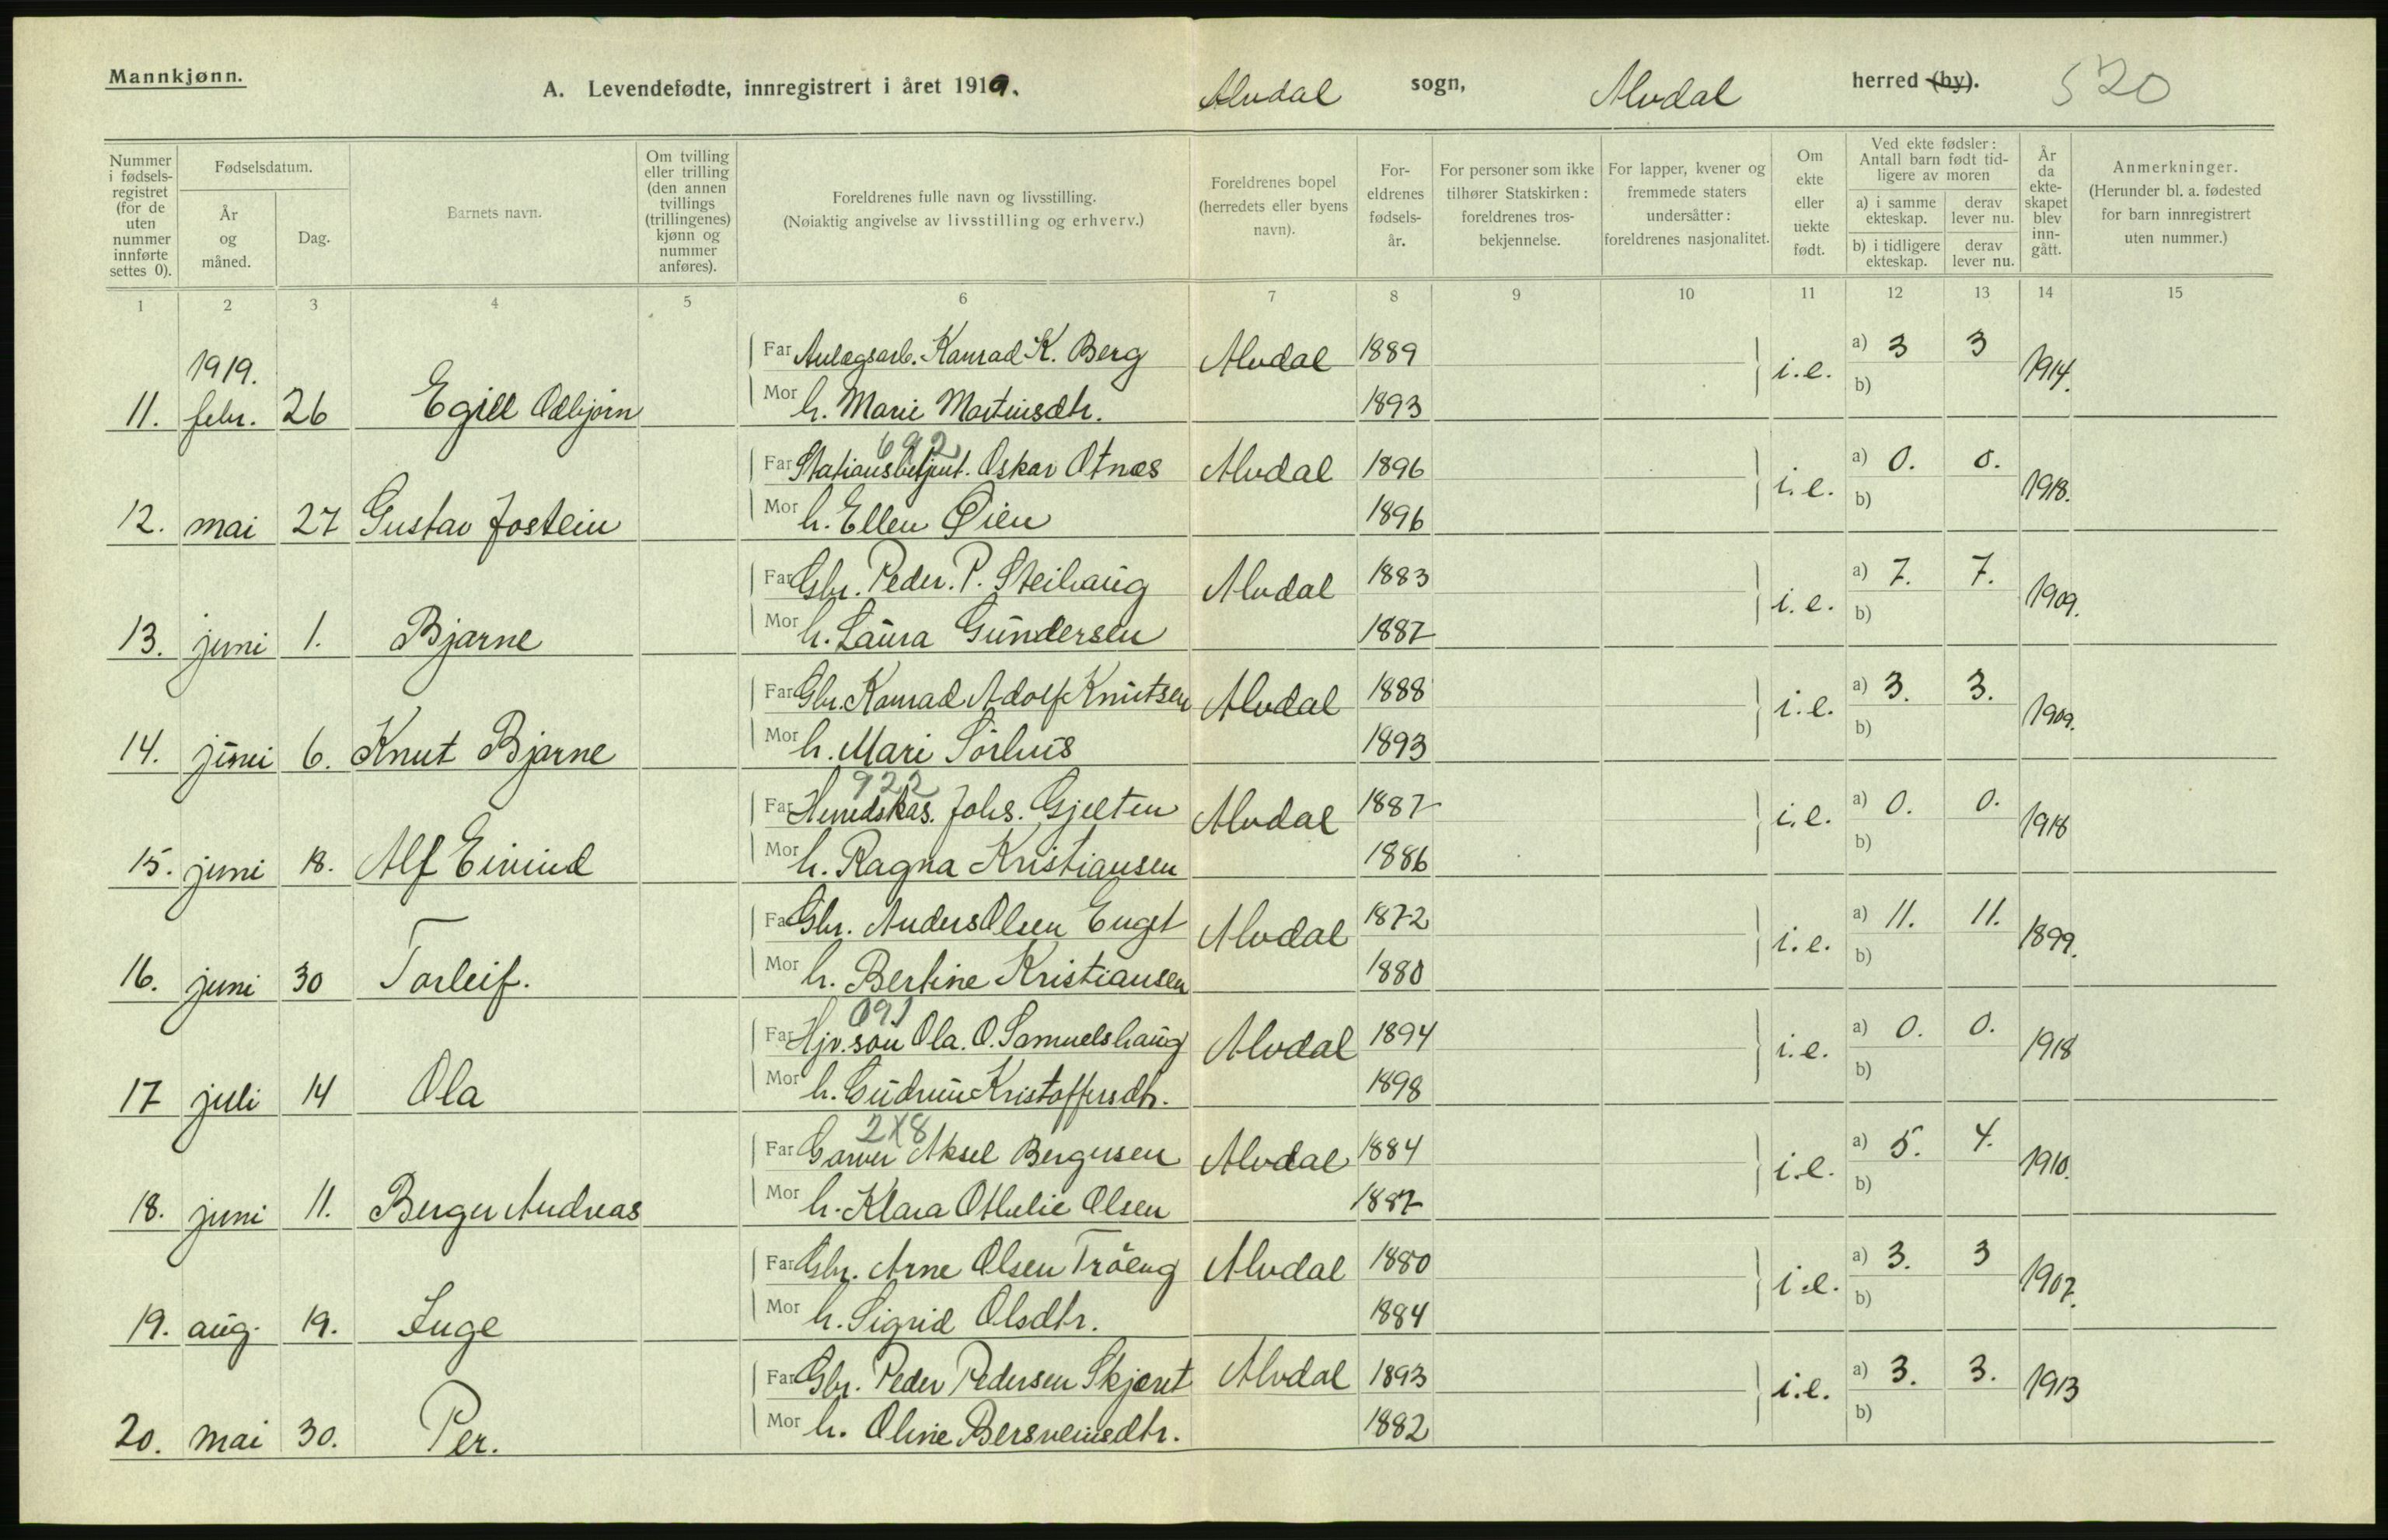 Mannkjønn.
A. Levendefødte, innregistrert i året 1919.
Alvdal sogn, Alvdal herred (by). 520
Nummer i fødsels-registret (for de uten nummer innførte settes 0).
Fødselsdatum.
År og måned.
Dag.
Barnets navn.
Om tvilling eller trilling (den annen tvillings (trillingenes) kjønn og nummer anføres).
Foreldrenes fulle navn og livsstilling.
(Nøiaktig angivelse av livsstilling og erhverv.)
Foreldrenes bopel (herredets eller byens navn).
For-eldrenes fødsels-år.
For personer som ikke tilhører Statskirken: foreldrenes tros-bekjennelse.
For lapper, kvener og fremmede staters undersåtter: foreldrenes nasjonalitet.
Om ekte eller uekte født.
Ved ekte fødsler: Antall barn født tid-ligere av moren
a) i samme ekteskap. derav lever nu.
b) i tidligere ekteskap. derav lever nu.
År da ekte-skapet blev inn-gått.
Anmerkninger.
(Herunder bl. a. fødested for barn innregistrert uten nummer.)
1 2 3 4 5 6 7 8 9 10 11 12 13 14 15
1919.
Far Anlægsarb. Konrad K. Berg Alvdal 1889 a) 3 3
11. febr. 26 Egill Odbjørn Mor h. Marie Martinsdtr. 1893 i.e. b) 1914.
692
Far Stationsbetjent. Oskar Otnæs Alvdal 1896 a) 0. 0.
12. mai 27 Gustav Jostein Mor h. Ellen Øien 1896 i.e. b) 1918.
Far Gbr. Peder. P. Steihaug Alvdal 1883 a) 7. 7.
13. juni 1. Bjarne Mor h. Laura Gundersen 1887 i.e. b) 1909.
Far Gbr. Konrad Adolf Knutsen Alvdal 1888 a) 3. 3.
14. juni 6. Knut Bjarne Mor h. Mari Sörhus 1893 i.e. b) 1909.
922
Far Herredskas. Johs. Gjelten Alvdal 1887 a) 0. 0.
15. juni 18. Alf Eivind Mor h. Ragna Kristiansen 1886 i.e. b) 1918
Far Gbr. Anders Olsen Enget Alvdal 1872 a) 11. 11.
16. juni 30 Torleif. Mor h. Bertine Kristiansen 1880 i.e. b) 1899.
091
Far Hjv. søn Ola. O. Samuelshaug Alvdal 1894 a) 0. 0.
17 juli 14 Ola Mor h. Gudrun Kristoffersdtr. 1898 i.e. b) 1918
2X8
Far Garver Aksel Bergersen Alvdal 1884 a) 5. 4.
18. juni 11. Berger Andreas Mor h. Klara Othelie Olsen 1887 i.e. b) 1910.
Far Gbr. Arne Olsen Tröeng Alvdal 1880 a) 3. 3
19. aug. 19. Inge Mor h. Sigrid Olsdtr. 1884 i.e. b) 1907.
Far Gbr. Peder Pedersen Skjæret Alvdal 1893 a) 3. 3.
20. mai 30. Per. Mor h. Oline Bersveinsdtr. 1882 i.e. b) 1913